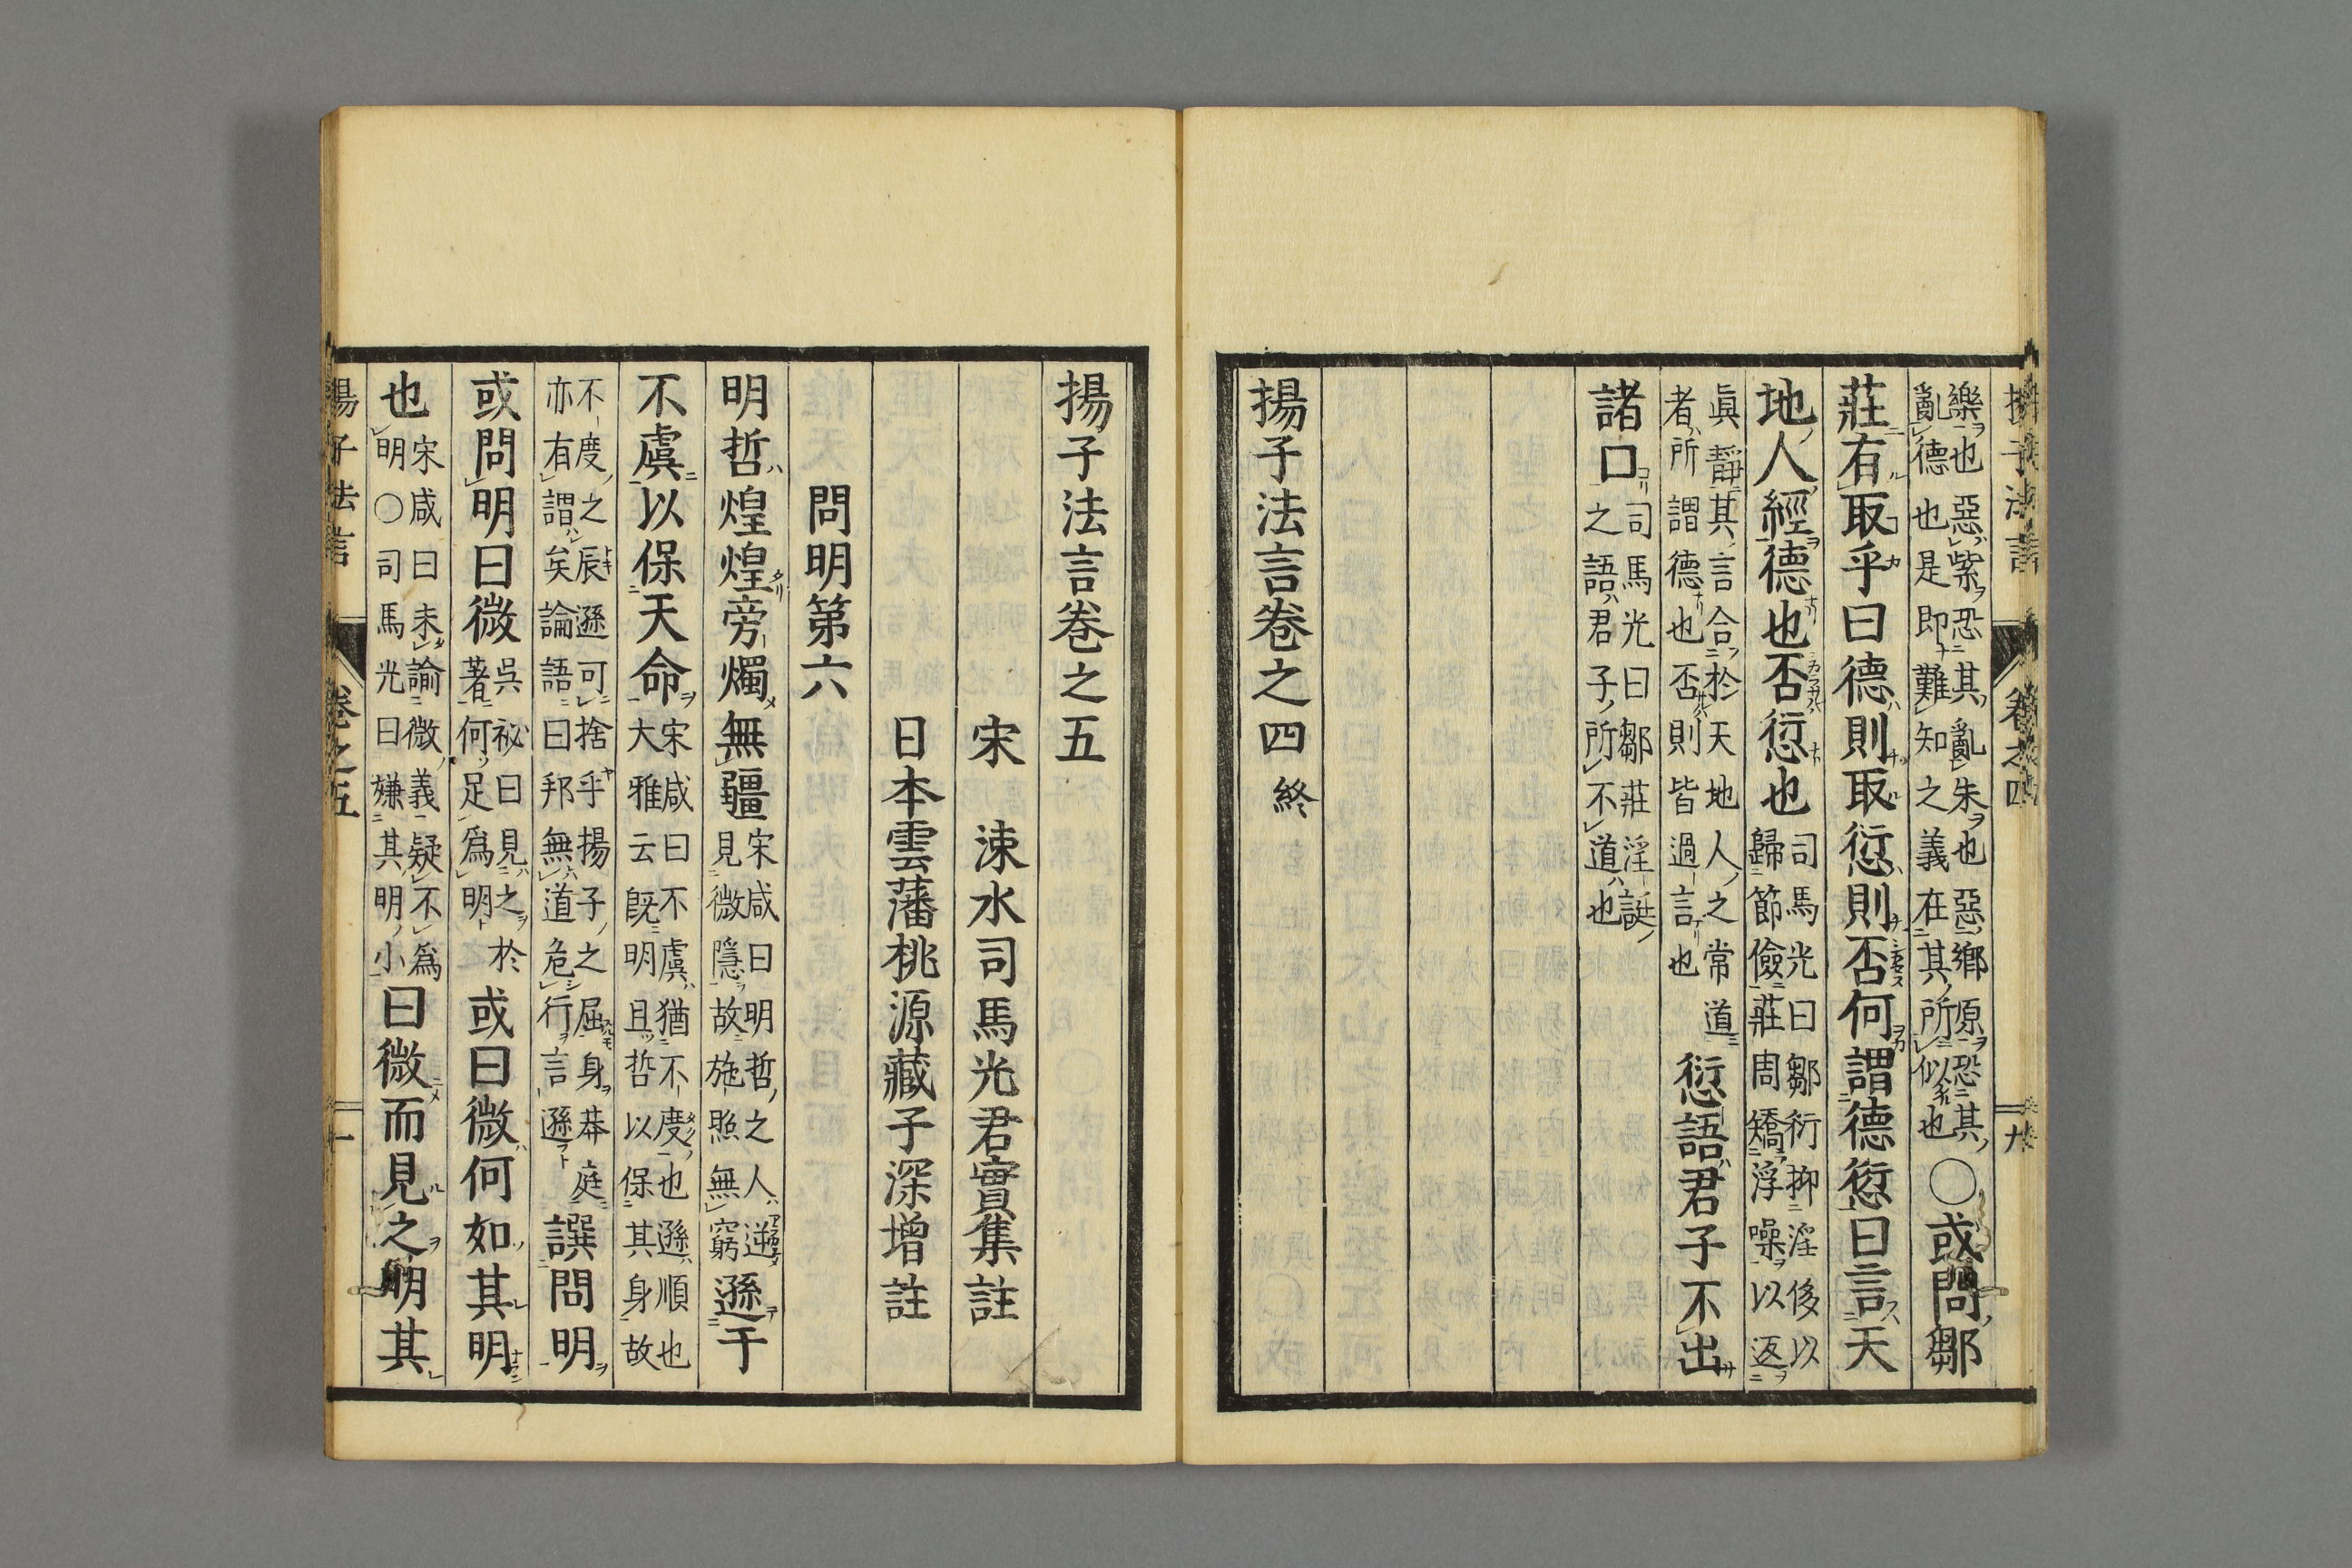 樂也惡紫恐其亂朱也惡鄉原恐其
亂德也是即難知之義在其所似也
〇或問鄒
莊有取乎曰德則取愆則否何謂德愆曰言天
地人經德也否愆也
司馬光曰鄒衍抑淫侈以
歸節儉莊周矯浮噪以返
眞靜其言合於天地人之常道
者所謂德也否則皆過言也
愆語君子不出
諸口
司馬光曰鄒莊淫誕
之語君子所不道也
揚子法言卷之四終
揚子法言卷之五
宋 涑水司馬光君實集註
日本雲藩桃源藏子深增註
問明第六
明哲煌煌旁燭無疆
宋咸曰明哲之人
見微隱故施照無窮
遜于
不虞以保天命
宋咸曰不虞猶不度也遜順也
大雅云既明且哲以保其身故
不度之辰遜可捨乎揚子之屈身莽庭
亦有謂矣論語曰邦無道危行言遜
譔問明
或問明曰微
吳祕曰見之於
著何足爲明
或曰微何如其明
也
宋咸曰未諭微義疑不爲
明〇司馬光曰嫌其明小
曰微而見之明其
揚子法言 卷之五 一